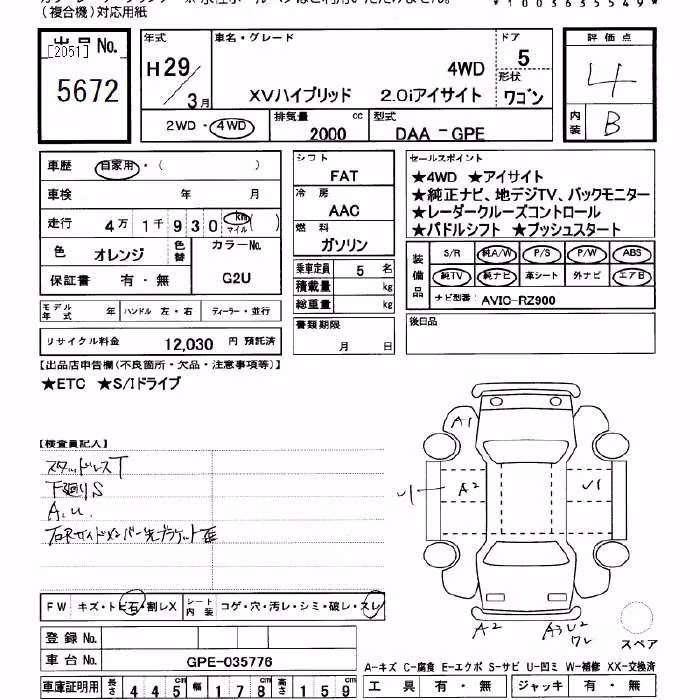 (複合機)対応用紙
*1003635549*
出品No.
[2051]
5672
年式
H29/3月
車名・グレード
4WD
XVハイブリッド 2.0iアイサイト
ドア
5
形状
ワゴン
2WD・4WD
排気量
2000 cc
型式
DAA-GPE
評価点
4
内装
B
車歴 自家用・( )
車検 年 月
走行 4万1千930 km マイル ( )
色 オレンジ
色替
カラーNo.
G2U
保証書 有・無
モデル年式 年
ハンドル 左・右
ディーラー・並行
リサイクル料金 12,030 円 預託済
シフト
FAT
冷房
AAC
燃料
ガソリン
乗車定員 5 名
積載量 kg
総重量 kg
書類期限
月 日
セールスポイント
★4WD ★アイサイト
★純正ナビ、地デジTV、バックモニター
★レーダークルーズコントロール
★パドルシフト ★プッシュスタート
装備品
S/R 純A/W P/S P/W ABS
純TV 純ナビ 革シート 外ナビ エアB
ナビ型番: AVIC-RZ900
後日品
【出品店申告欄(不良箇所・欠品・注意事項等)】
★ETC ★S/Iドライブ
【検査員記入】
スタッドレスT
下廻りS
A.U.
右Rサイドメンバー先ブラケット
A1
A2
U1
U1
A2
A3 U2
W2
スペア
FW キズ・トビ石・割レX
シート内装 コゲ・穴・汚レ・シミ・破レ・スレ
登録No.
車台No. GPE-035776
車庫証明用 長さ 445 cm 幅 178 cm 高さ 159 cm
A-キズ C-腐食 E-エクボ S-サビ U-凹ミ W-補修 XX-交換済
工具 有・無 ジャッキ 有・無